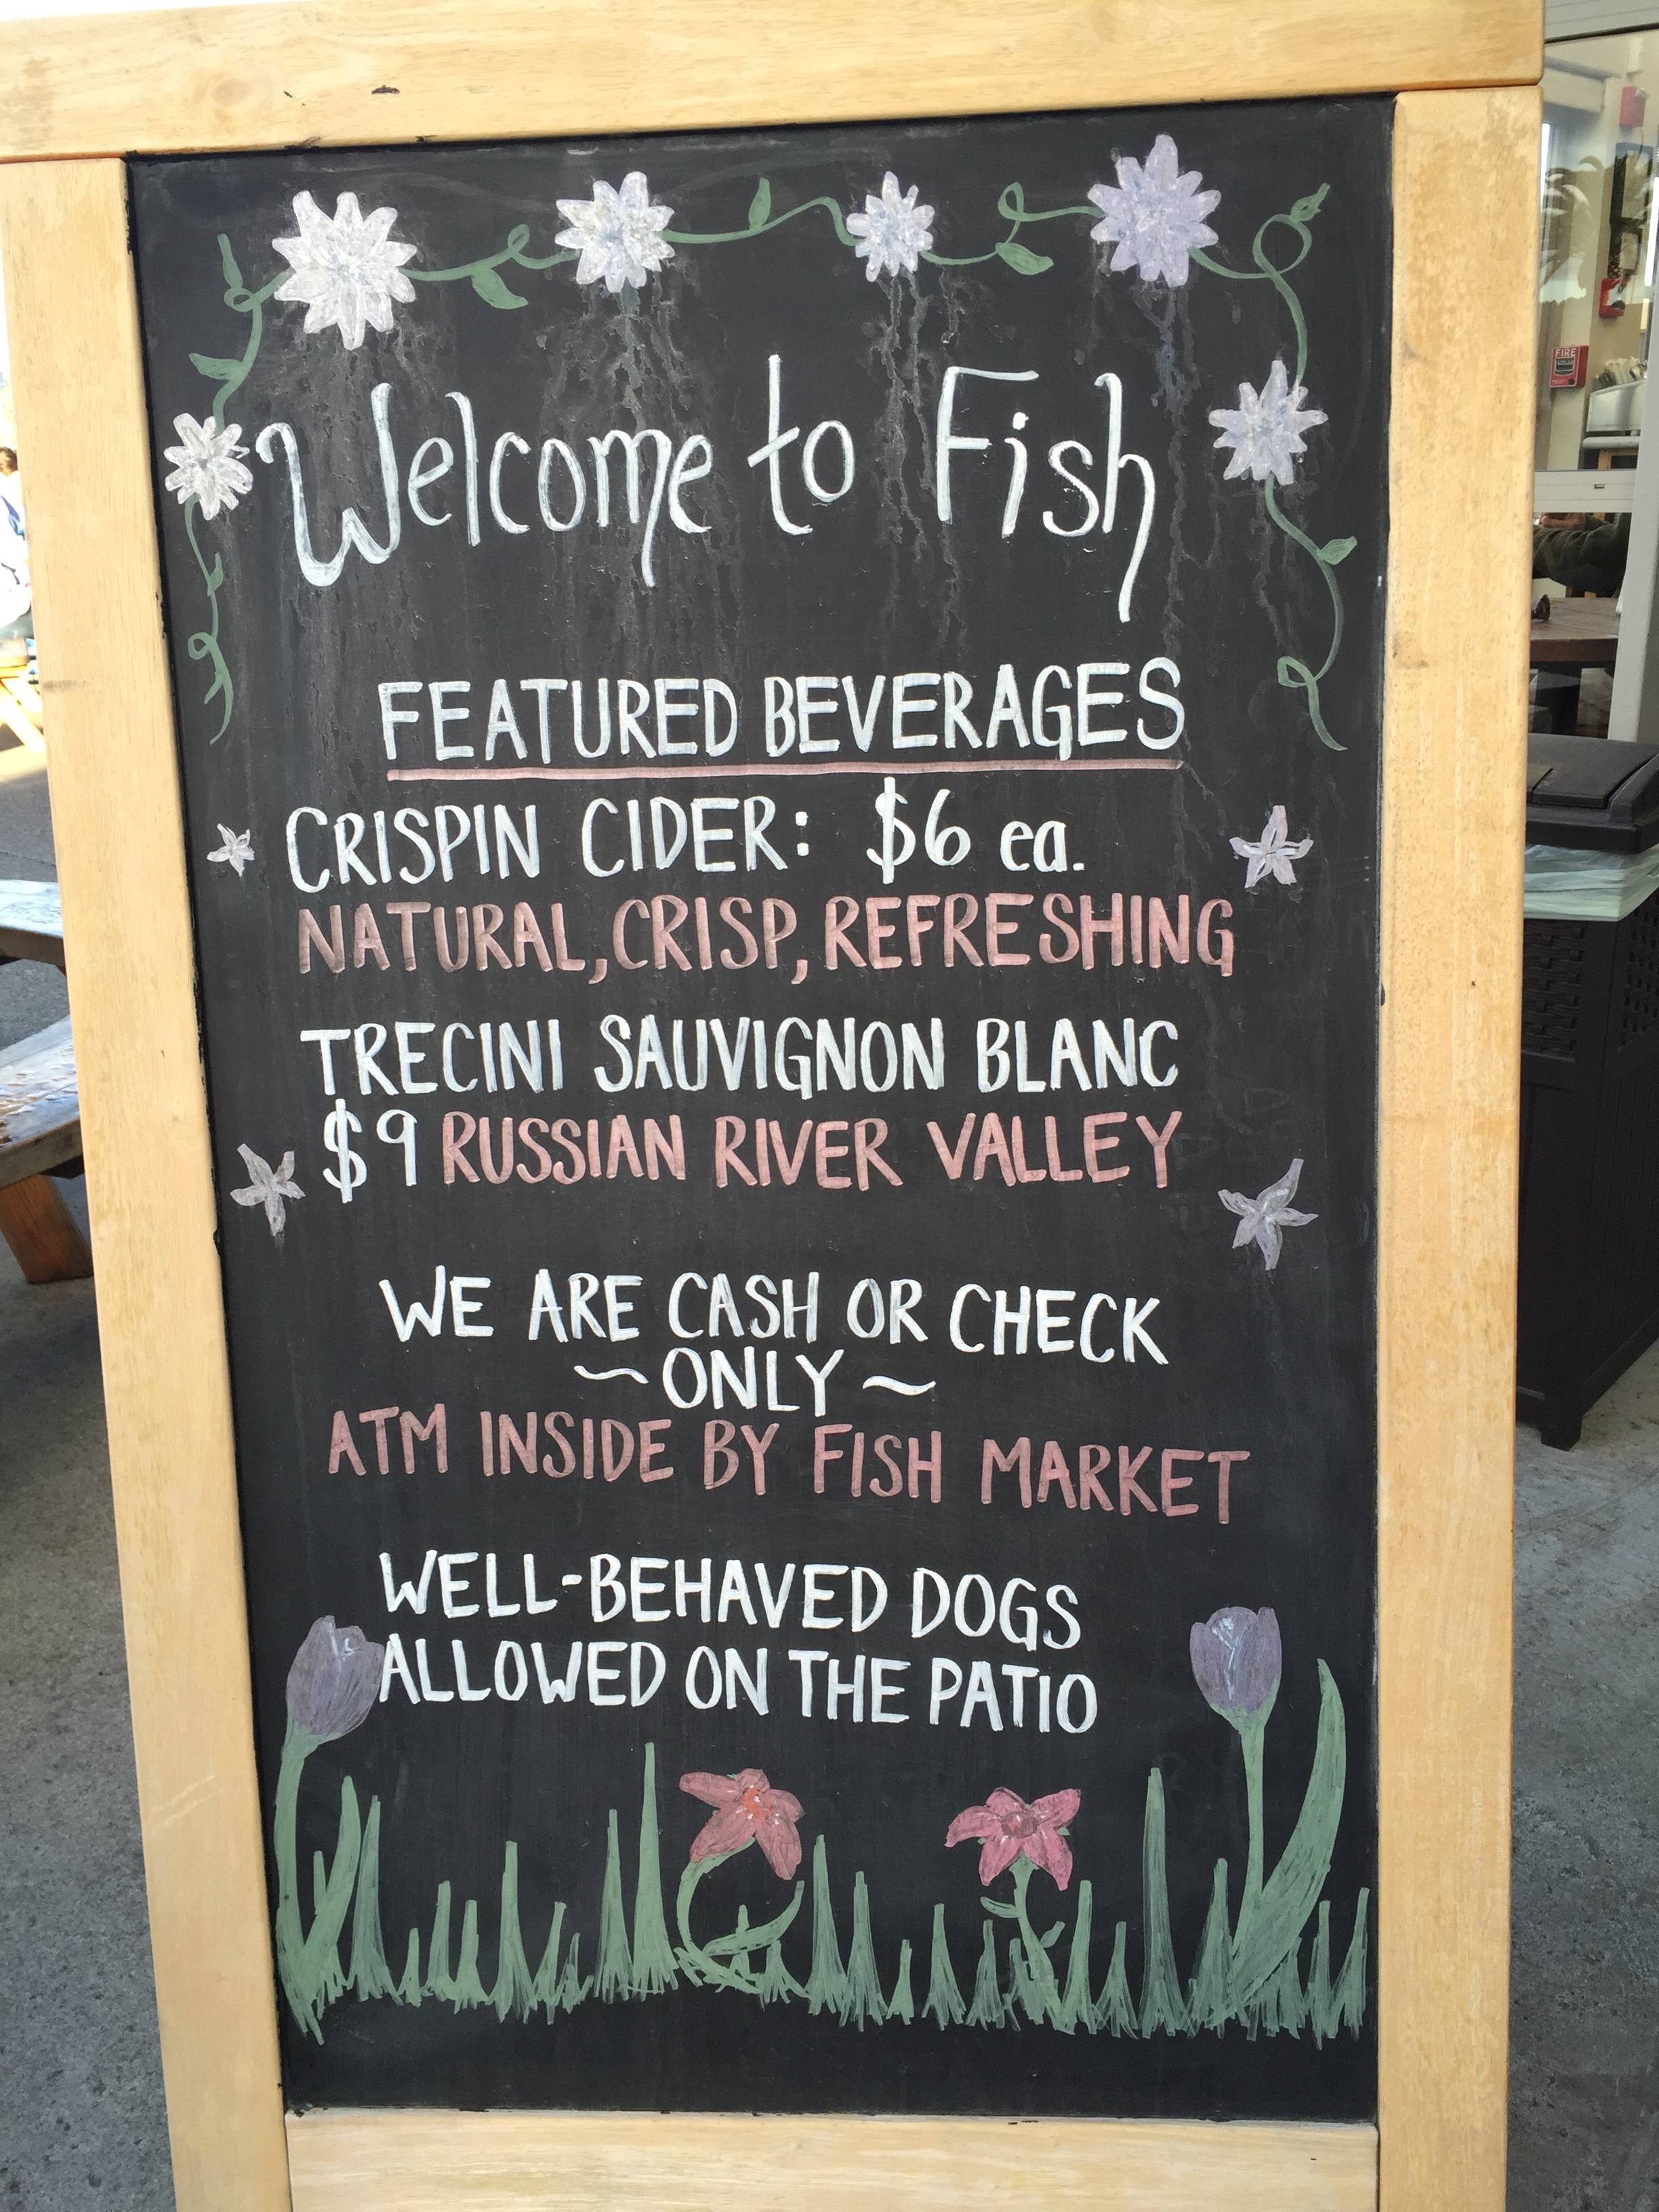 Welcome to Fish
FEATURED BEVERAGES
CRISPIN CIDER: $6 ea.
NATURAL, CRISP, REFRESHING
TRECINI SAUVIGNON BLANC
$9 RUSSIAN RIVER VALLEY
WE ARE CASH OR CHECK
~ONLY~
ATM INSIDE BY FISH MARKET
WELL-BEHAVED DOGS
ALLOWED ON THE PATIO
FIRE